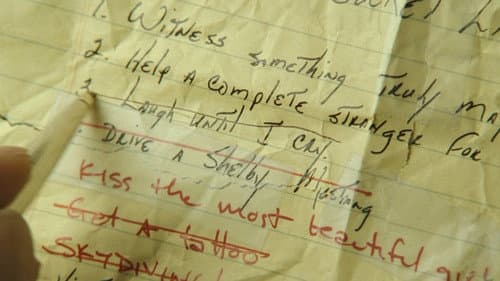 1. Witness something Truly
2. Help A Complete STRANGER FOR
3. Laugh Until I Cry.
DRIVE A Shelby Mustang
Kiss the most beautiful
Get A tattoo
SKYDIVING